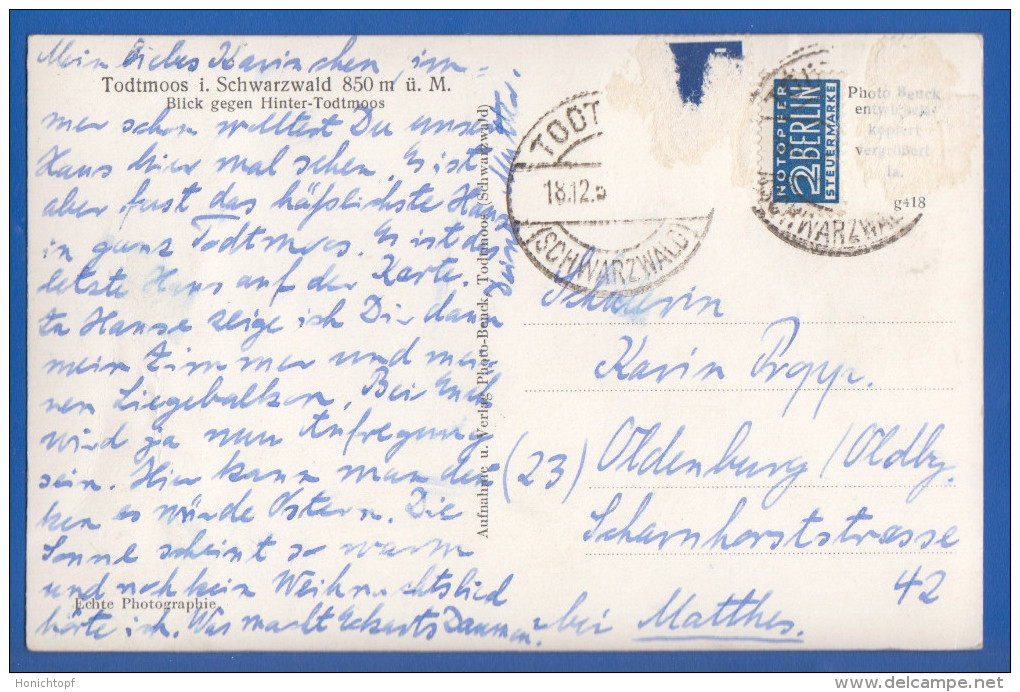 Mein liebes Karinchen, im-
Todtmoos i. Schwarzwald 850 m ü. M.
Blick gegen Hinter-Todtmoos
mer schon wolltest Du unser
Haus hier mal sehen. Es ist
aber fast das häßlichste Haus
in ganz Todtmoos. Es ist das
letzte Haus auf der Karte.
Zu Hause zeige ich Dir dann
mein Zimmer und mei-
nen Liegebalkon. Bei Euch
wird ja nun Aufregung
sein. Hier kann man den-
ken es würde Ostern. Die
Sonne scheint so warm
und noch kein Weihnachtslied
Echte Photographie
hörte ich. Was macht Eckarts Daumen?
Deine
Aufnahme u. Verlag Photo-Beuck, Todtmoos (Schwarzwald)
TODT
18.12.5
(SCHWARZWALD)
NOTOPFER
2 BERLIN
STEUERMARKE
SCHWARZWALD
Photo Beuck
kopiert
vergrößert
1a.
g418
Schülerin
Karin Propp.
(23) Oldenburg/Oldbg.
Scharnhorststrasse
42
bei Matthes.
Honichtopf
www.delcampe.net